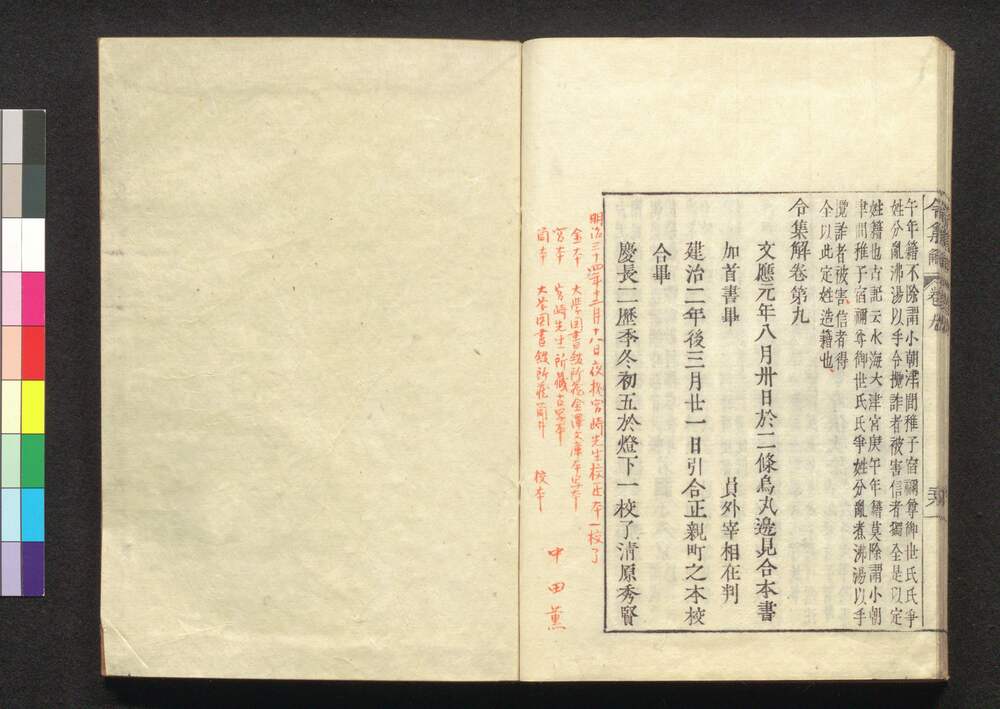 午年籍不除謂小朝津間稚子宿禰尊御世氏氏争
姓分亂沸湯以手令攪詐者被害信者獨全是以定
姓籍也古記云水海大津宮庚午年籍莫除謂小朝
津間稚子宿禰尊御世氏氏爭姓分亂煮沸湯以手
攪詐者被害信者得
全以此定姓造籍也
令集解卷第九
文應元年八月卅日於二條烏丸邊見合本書
加首書畢　員外宰相在判
建治二年後三月廿一日引合正親町之本校
合畢
慶長二歷季冬初五於燈下一校了清原秀賢
明治三十四年十二月十八日夜以宮崎先生校正本一校了
金本　大學図書館所蔵金澤文庫本写本
宮本　宮崎先生所蔵古写本
大学図書館所蔵
校本
中田薫